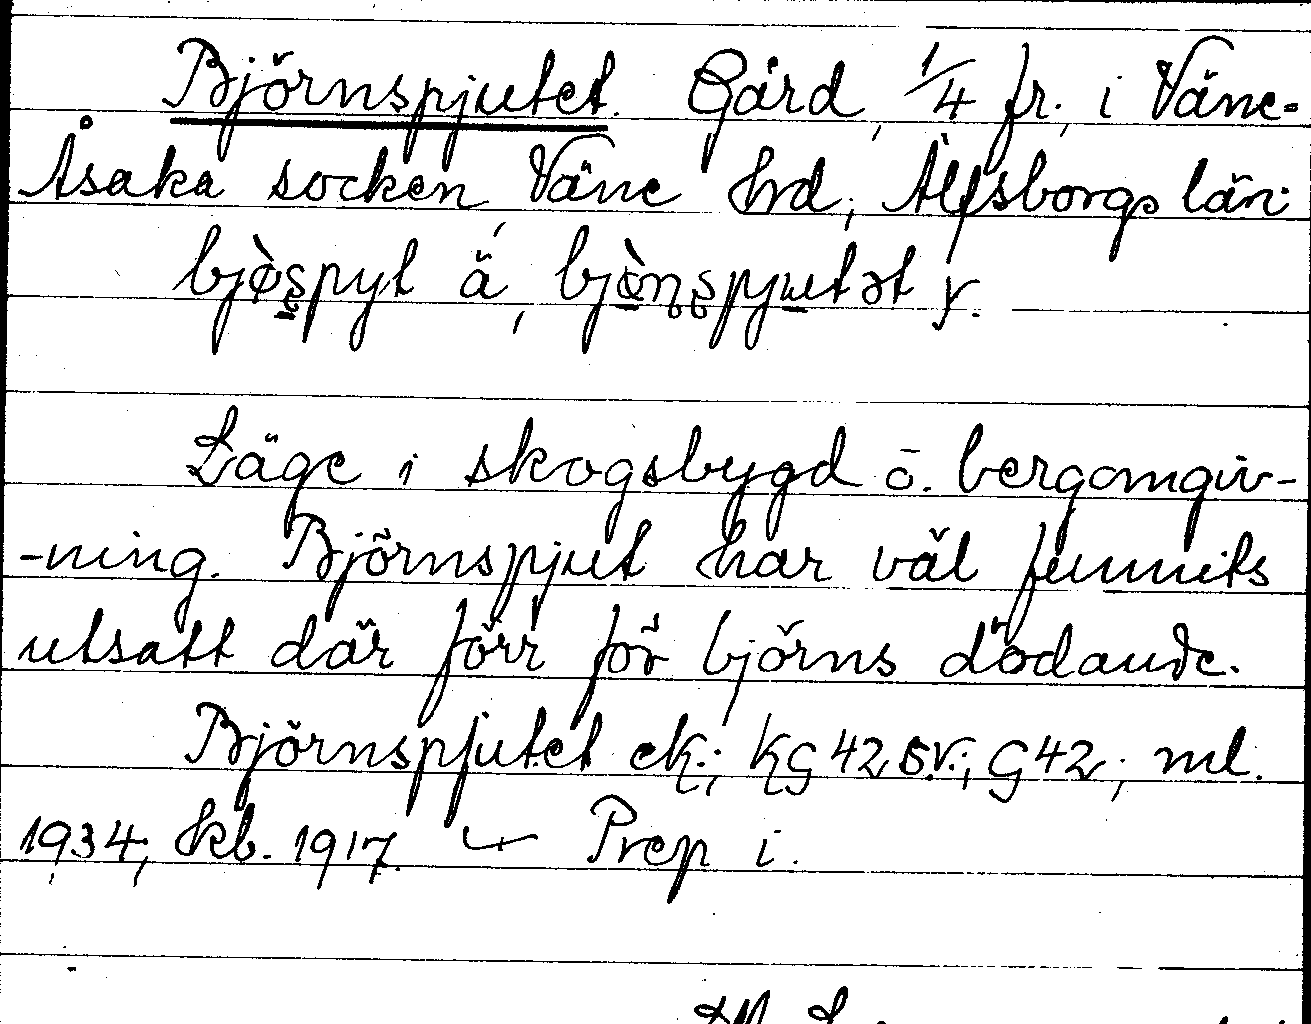 Björnspjutet. Gård, 1/4 fr., i Väne-
Åsaka socken, Väne hrd, Älfsborgs län.
bjø̀spyt ä, bjø̀nspjutət y.
Läge i skogsbygd o. bergomgiv-
-ning. Björnspjut har väl funnits
utsatt där förr för björns dödande.
Björnspjutet ek.; KG 42 s.v.; G 42; ml.
1934; kb. 1917. Prep i.